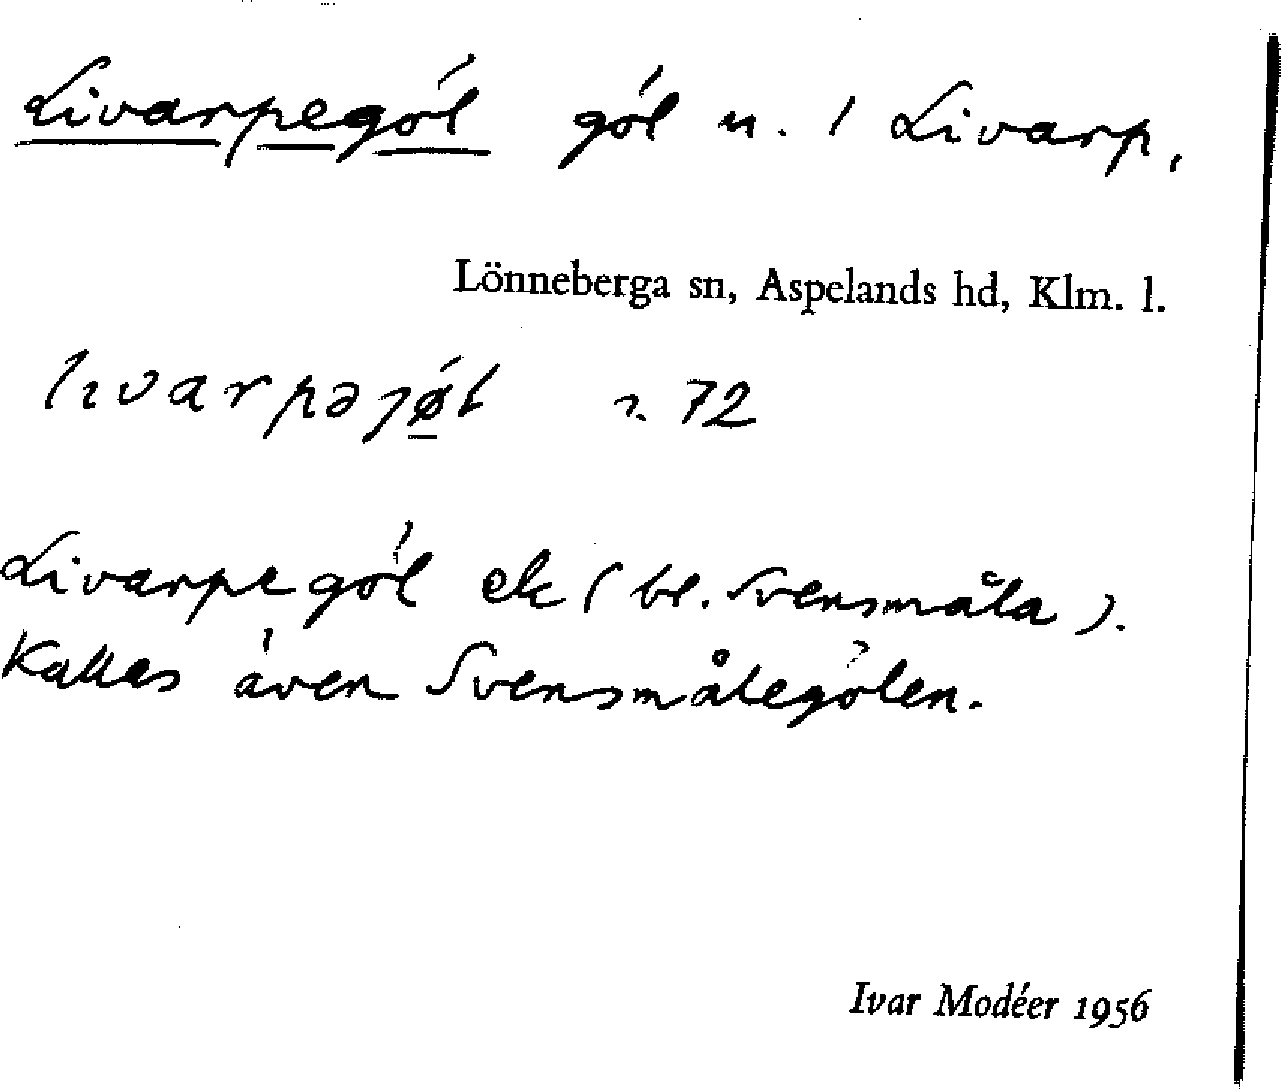 Livarpegöl göl n. / Livarp,
Lönneberga sn, Aspelands hd, Klm. l.
livarpəjøl 72
Livarpegöl ek (bl. Svensmåla).
Kallas även Svensmålegölen.
Ivar Modéer 1956